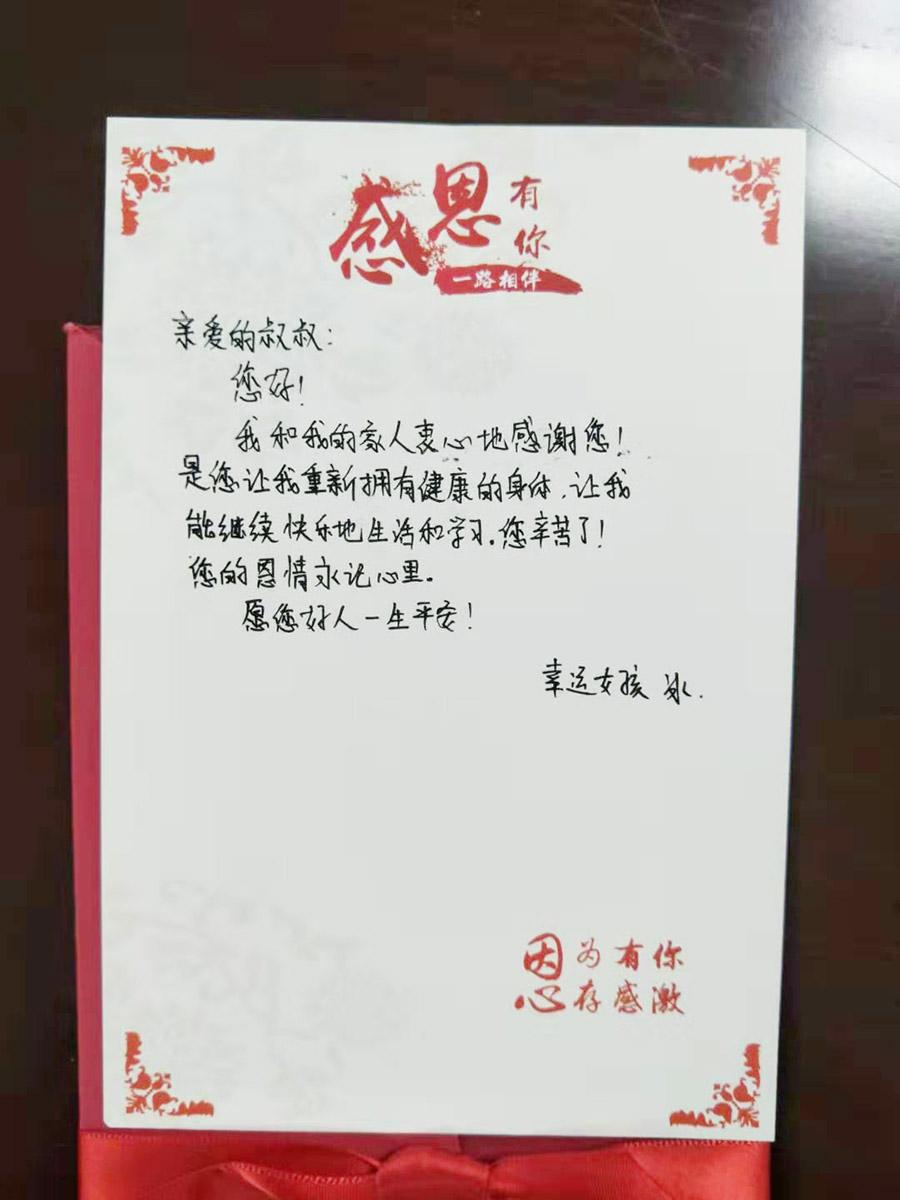 感恩有你
一路相伴
亲爱的叔叔：
您好！
我和我的家人衷心地感谢您！
是您让我重新拥有健康的身体，让我
能继续快乐地生活和学习。您辛苦了！
您的恩情永记心里。
愿您好人一生平安！
幸运女孩 冰.
因为有你
心存感激